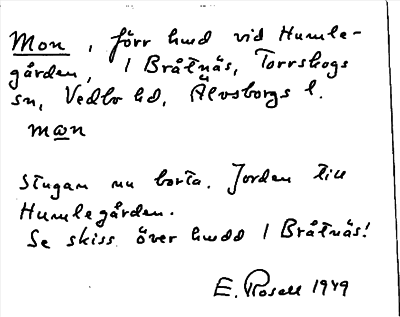 Mon, förr hmd vid Humle-
gården, 1 Bråtnäs, Torrskogs
sn, Vedbo hd, Älvsborgs l.
mωn
Stugan nu borta. Jorden till
Humlegården.
Se skiss över hmdd 1 Bråtnäs!
E. Rosell 1949